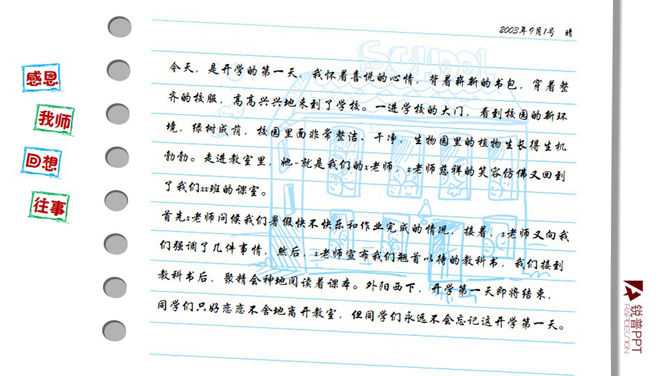 2003年9月1号 晴
今天，是开学的第一天，我怀着喜悦的心情，背着崭新的书包，穿着整
齐的校服，高高兴兴地来到了学校。一进学校的大门，看到校园的新环
境，绿树成荫，校园里面非常整洁、干净，生物园里的植物生长得生机
勃勃。走进教室里，她-就是我们的x老师，x老师慈祥的笑容仿佛又回到
了我们xx班的课室。
首先x老师问候我们暑假快不快乐和作业完成的情况，接着，x老师又向我
们强调了几件事情，然后，x老师宣布我们翘首以待的教科书，我们接到
教科书后，聚精会神地阅读着课本。外阳西下，开学第一天即将结束，
同学们只好恋恋不舍地离开教室，但同学们永远不会忘记这开学第一天。
感恩
我师
回想
往事
SCHOOL
锐普PPT
RAPIDESIGN